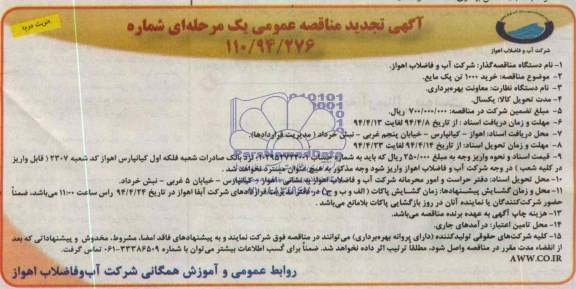 نوبت دوم
آگهی تجدید مناقصه عمومی یک مرحله‌ای شماره
۱۱۰/۹۴/۲۷۶
شرکت آب و فاضلاب اهواز
۱- نام دستگاه مناقصه‌گذار: شرکت آب و فاضلاب اهواز.
۲- موضوع مناقصه: خرید ۱۰۰۰ تن پک مایع.
۳- نام دستگاه نظارت: معاونت بهره‌برداری.
۴- مدت تحویل کالا: یکسال.
۵- مبلغ تضمین شرکت در مناقصه: ۷۰۰/۰۰۰/۰۰۰ ریال.
۶- مهلت و زمان دریافت اسناد: از تاریخ ۹۴/۴/۸ لغایت ۹۴/۴/۱۳
۷- محل دریافت اسناد: اهواز - کیانپارس - خیابان پنجم غربی - نبش خرداد ( مدیریت قراردادها).
۸- مهلت و زمان تحویل اسناد: از تاریخ ۹۴/۴/۱۴ لغایت ۹۴/۴/۲۳
۹- قیمت اسناد و نحوه واریز وجه به مبلغ ۲۵۰/۰۰۰ ریال که باید به شماره حساب نزد بانک صادرات شعبه فلکه اول کیانپارس اهواز کد شعبه ۲۳۰۷ ( قابل واریز
در کلیه شعب ) در وجه شرکت آب و فاضلاب اهواز واریز شود وجه مذکور به هیچ عنوان مسترد نخواهد شد.
۱۰- محل تحویل اسناد: دفتر حراست و امور محرمانه شرکت آب و فاضلاب اهواز به نشانی - اهواز - کیانپارس - خیابان ۵ غربی - نبش خرداد.
۱۱- محل و زمان گشایش پیشنهادها: زمان گشایش پاکات ( الف و ب و ج) در دفتر قراردادهای شرکت آبفا اهواز در تاریخ ۹۴/۴/۲۴ راس ساعت ۱۱:۰۰ می‌باشد، ضمناً
حضور شرکت‌کنندگان یا نماینده آنان در روز بازگشایی پاکات بلامانع می‌باشد.
۱۳- هزینه چاپ آگهی به عهده برنده مناقصه می‌باشد.
۱۴- محل تامین اعتبار: درآمدهای جاری.
۱۵- کلیه شرکت‌های حقوقی تولیدکننده (دارای پروانه بهره‌برداری) می‌توانند در مناقصه فوق شرکت نمایند و به پیشنهادهای فاقد امضا، مشروط، مخدوش و پیشنهاداتی که بعد
از انقضاء مدت مقرر در مناقصه واصل شود، مطلقاً ترتیب اثر داده نخواهد شد. ضمناً برای کسب اطلاعات بیشتر می‌توان با شماره ۳۳۳۸۶۵۰۹-۰۶۱ تماس گرفت.
AWW.CO.IR
روابط عمومی و آموزش همگانی شرکت آب‌وفاضلاب اهواز